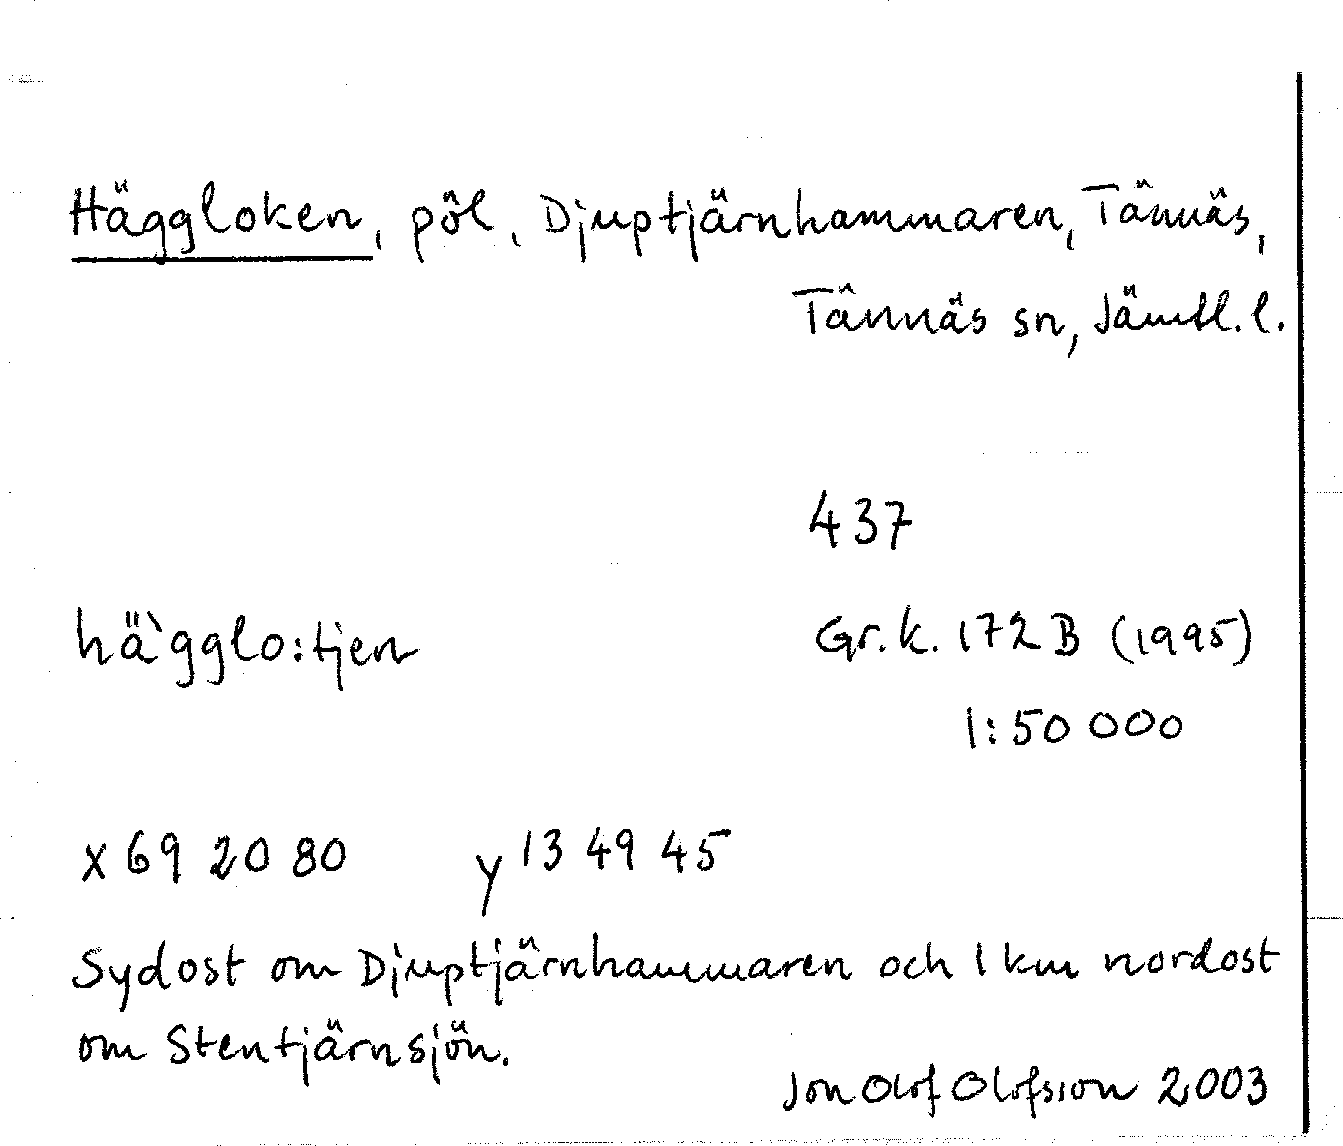 Häggloken, pöl, Djuptjärnhammaren, Tännäs,
Tännäs sn, Jämtl. l.
437
hä`gglo:tjen
Gr.k. 172 B (1995)
1:50 000
x 69 20 80 y 13 49 45
Sydost om Djuptjärnhammaren och 1 km nordost
om Stentjärnsjön.
Jon Olof Olofsson 2003